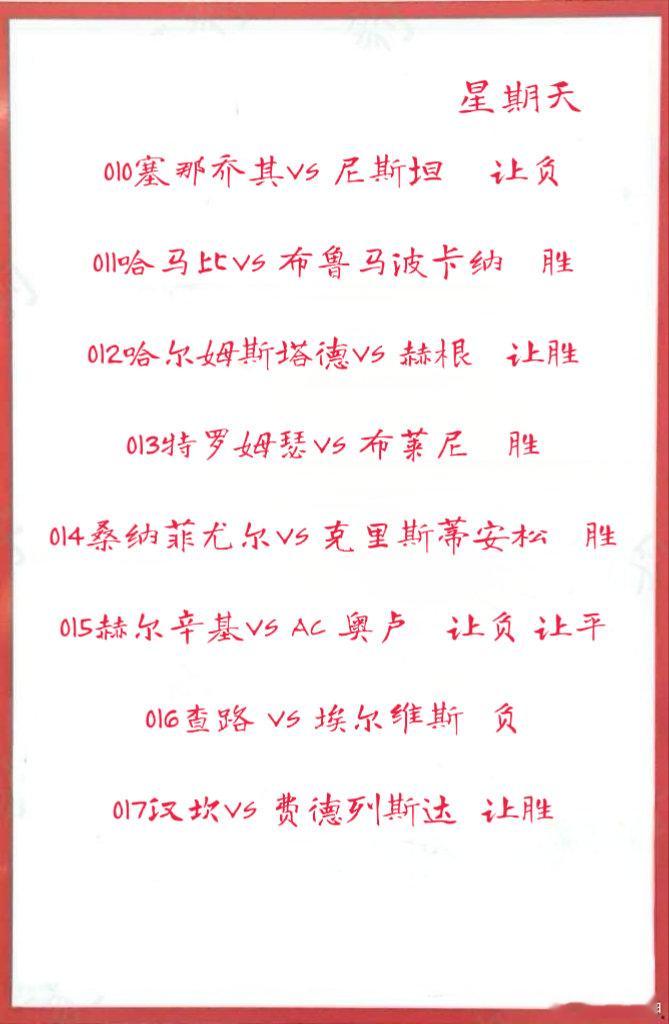 星期天
010塞那乔其VS 尼斯坦 让负
011哈马比VS 布鲁马波卡纳 胜
012哈尔姆斯塔德VS 赫根 让胜
013特罗姆瑟VS 布莱尼 胜
014桑纳菲尤尔VS 克里斯蒂安松 胜
015赫尔辛基VS AC 奥卢 让负 让平
016查路 VS 埃尔维斯 负
017汉坎VS 费德列斯达 让胜